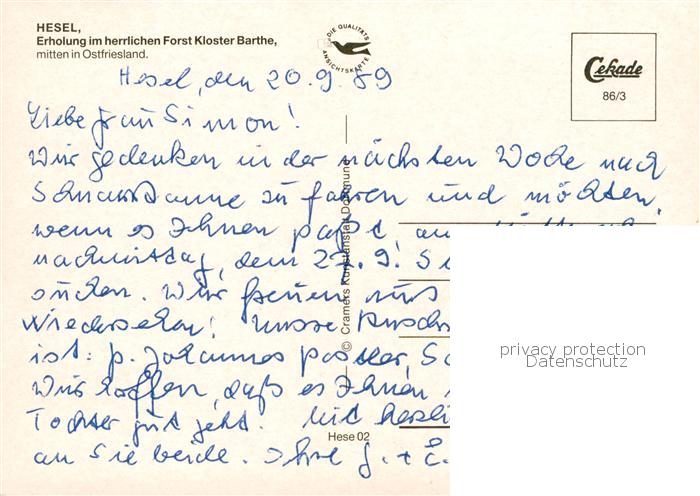 HESEL,
Erholung im herrlichen Forst Kloster Barthe,
mitten in Ostfriesland.
DIE QUALITÄTS
ANSICHTSKARTE
Cekade
86/3
Hesel, den 20.9.89
Liebe Frau Simon!
Wir gedenken in der nächsten Woche nach
zu fahren und möchten,
wenn es Ihnen paßt am
nachmittag, dem 27.9!
suchen. Wir freuen uns
Wiedersehen! Unsere
ist: p. Johannes
Wir hoffen, daß es Ihnen
Tochter gut geht. Mit
an Sie beide. Ihre J. + E.
© Cramers Kunstanstalt Dortmund
Hese 02
privacy protection
Datenschutz